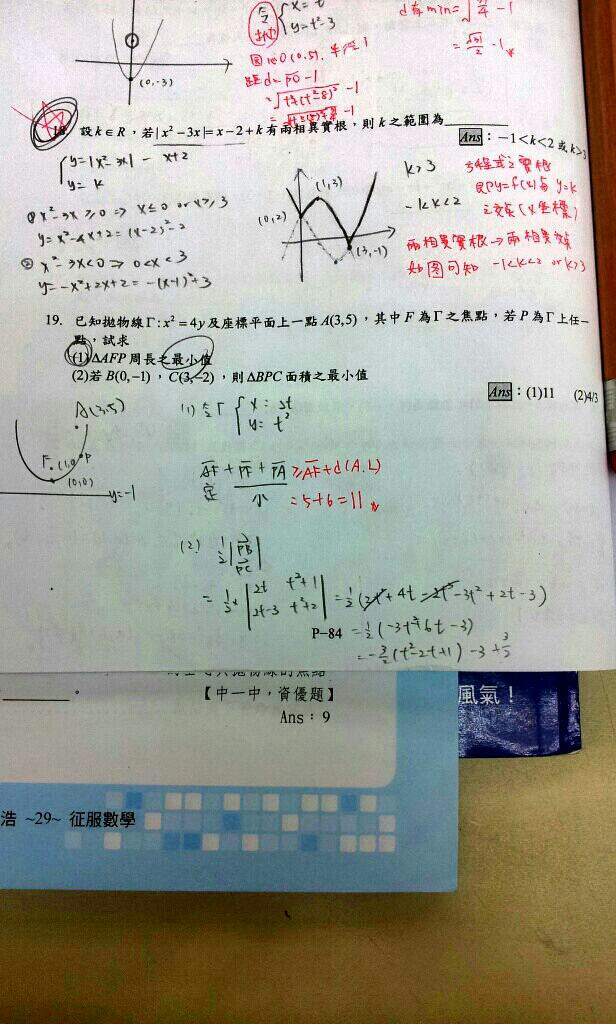 (0,-3)
令
x = t
y = t²-3
圓心O(0,5), 半徑1
-1
18. 設k∈R，若|x²-3x|=x-2+k有兩相異實根，則k之範圍為
Ans：-1<k<2或k>3
y=|x²-3x| - x+2
y= k
① x²-3x≥0 ⇒ x≤0 or x≥3
y= x²-4x+2=(x-2)²-2
② x²-3x<0 ⇒ 0<x<3
y= -x²+2x+2= -(x-1)²+3
(0,2)
(1,3)
(3,-1)
k>3
-1<k<2
方程式之實根
即y=f(x)與 y=k
之交點(x坐標)
兩相異實根→兩相異交點
如圖可知 -1<k<2 or k>3
19. 已知拋物線Γ:x²=4y及座標平面上一點A(3,5)，其中F為Γ之焦點，若P為Γ上任一
點，試求
(1)ΔAFP周長之最小值
(2)若B(0,-1)，C(3,-2)，則ΔBPC面積之最小值
Ans：(1)11 (2)4/3
A(3,5)
F
P
(0,0)
y=-1
(1) 令Γ
x= 2t
y= t²
AF + PF + PA ≥ AF + d(A,L)
定 小 = 5+6=11
(2) 1/2 |PB PC|
= 1/2 × |2t t²+1 2t-3 t²+2| = 1/2 (2t³+4t-2t³-3t²+2t-3)
P-84 = 1/2 (-3t²+6t-3)
【中一中，資優題】
Ans：9
風氣！
浩 ~29~ 征服數學